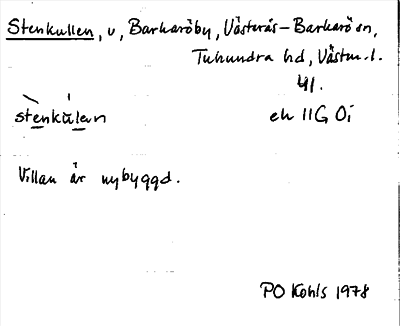 Stenkullen, v, Barkaröby, Västerås-Barkarö sn,
Tuhundra hd, Västm. l.
41.
stenkulen
ek 11G 0i
Villan är nybyggd.
PO Kohls 1978